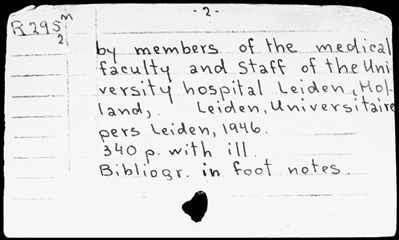 - 2 -
R295 m
2
by members of the medical
faculty and staff of the Uni-
versity hospital Leiden, Hol-
land,. Leiden, Universitaire
pers Leiden, 1946.
340 p. with ill.
Bibliogr. in foot notes.